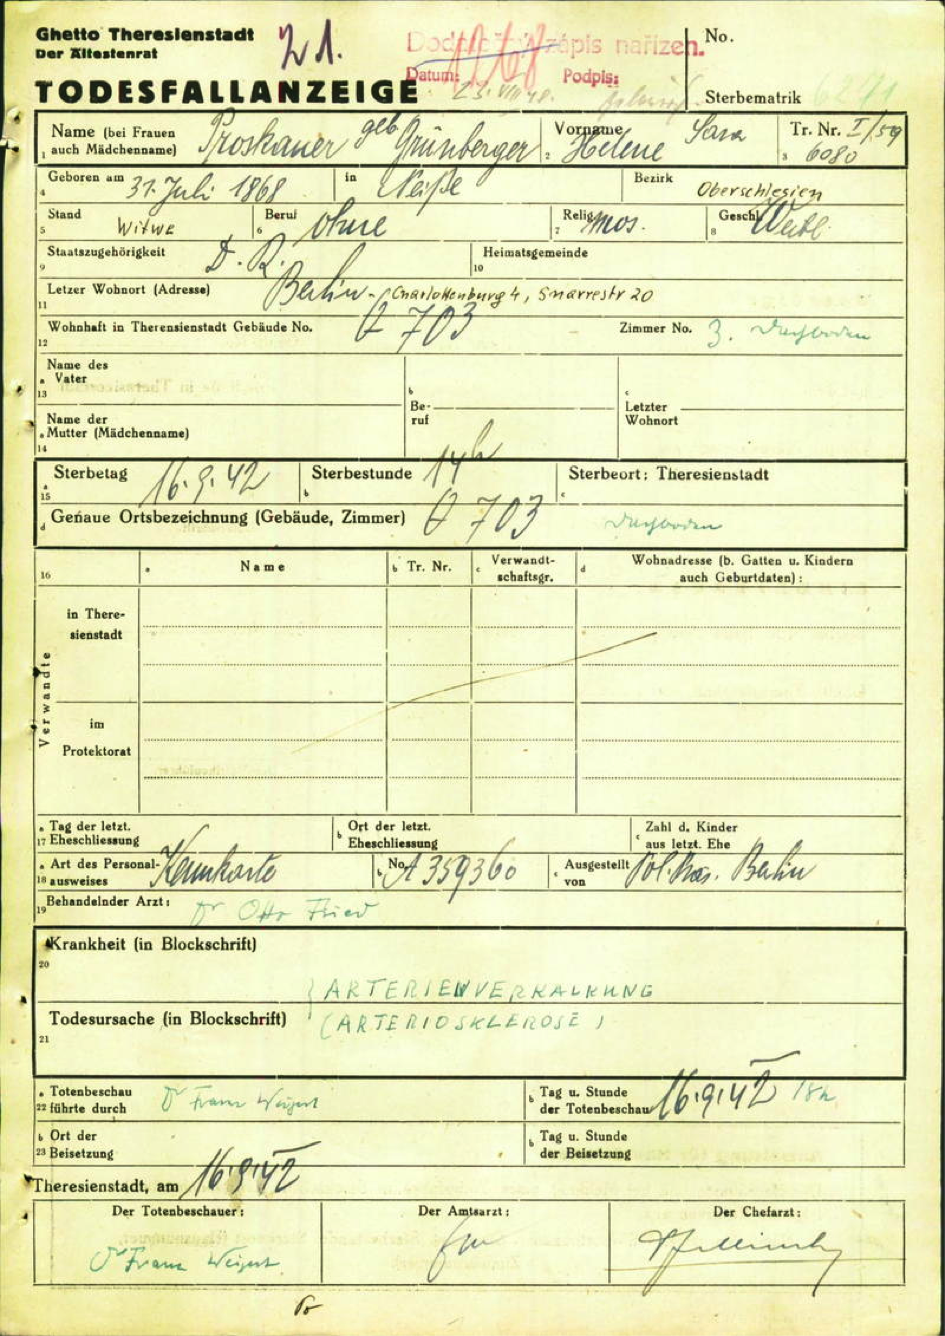 Ghetto Theresienstadt
Der Ältestenrat
21.
Dodatečný zápis nařízen.
No.
TODESFALLANZEIGE
Datum:
Podpis:
23. VIII 48.
Sterbematrik
Name (bei Frauen auch Mädchenname) Proskauer geb Grünberger
1
Vorname Helene Sara
2
Tr. Nr. I/59
3 6080
Geboren am 31. Juli 1868 in Neiße Bezirk Oberschlesien
4
Stand Witwe Beruf ohne Relig. mos. Geschl. Weibl.
5 6 7 8
Staatszugehörigkeit D. R. Heimatsgemeinde
9 10
Letzer Wohnort (Adresse) Berlin-Charlottenburg 4,
11
Wohnhaft in Therensienstadt Gebäude No. Q 703 Zimmer No. 3. Dachboden
12
Name des
a Vater
13
b
Be-
ruf
c
Letzter
Wohnort
Name der
a Mutter (Mädchenname)
14
Sterbetag 16.9.42 Sterbestunde 14h Sterbeort: Theresienstadt
a 15 b c
d Genaue Ortsbezeichnung (Gebäude, Zimmer) Q 703 Dachboden
16 a Name b Tr. Nr. c Verwandt-schaftsgr. d Wohnadresse (b. Gatten u. Kindern auch Geburtdaten):
Verwandte
in There-
sienstadt
im
Protektorat
a Tag der letzt.
17 Eheschliessung
b Ort der letzt.
Eheschliessung
c Zahl d. Kinder
aus letzt. Ehe
a Art des Personal-
18 ausweises Kennkarte
b No. A 359360
c Ausgestellt
von Pol. Präs. Berlin
19 Behandelnder Arzt: Dr Otto Fried
Krankheit (in Blockschrift)
20
ARTERIENVERKALKUNG
Todesursache (in Blockschrift) (ARTERIOSKLEROSE)
21
a Totenbeschau
22 führte durch Dr Franz Weigert
b Tag u. Stunde
der Totenbeschau 16.9.42 18h
b Ort der
23 Beisetzung
b Tag u. Stunde
der Beisetzung
Theresienstadt, am 16.9.42
Der Totenbeschauer: Der Amtsarzt: Der Chefarzt:
Dr Franz Weigert